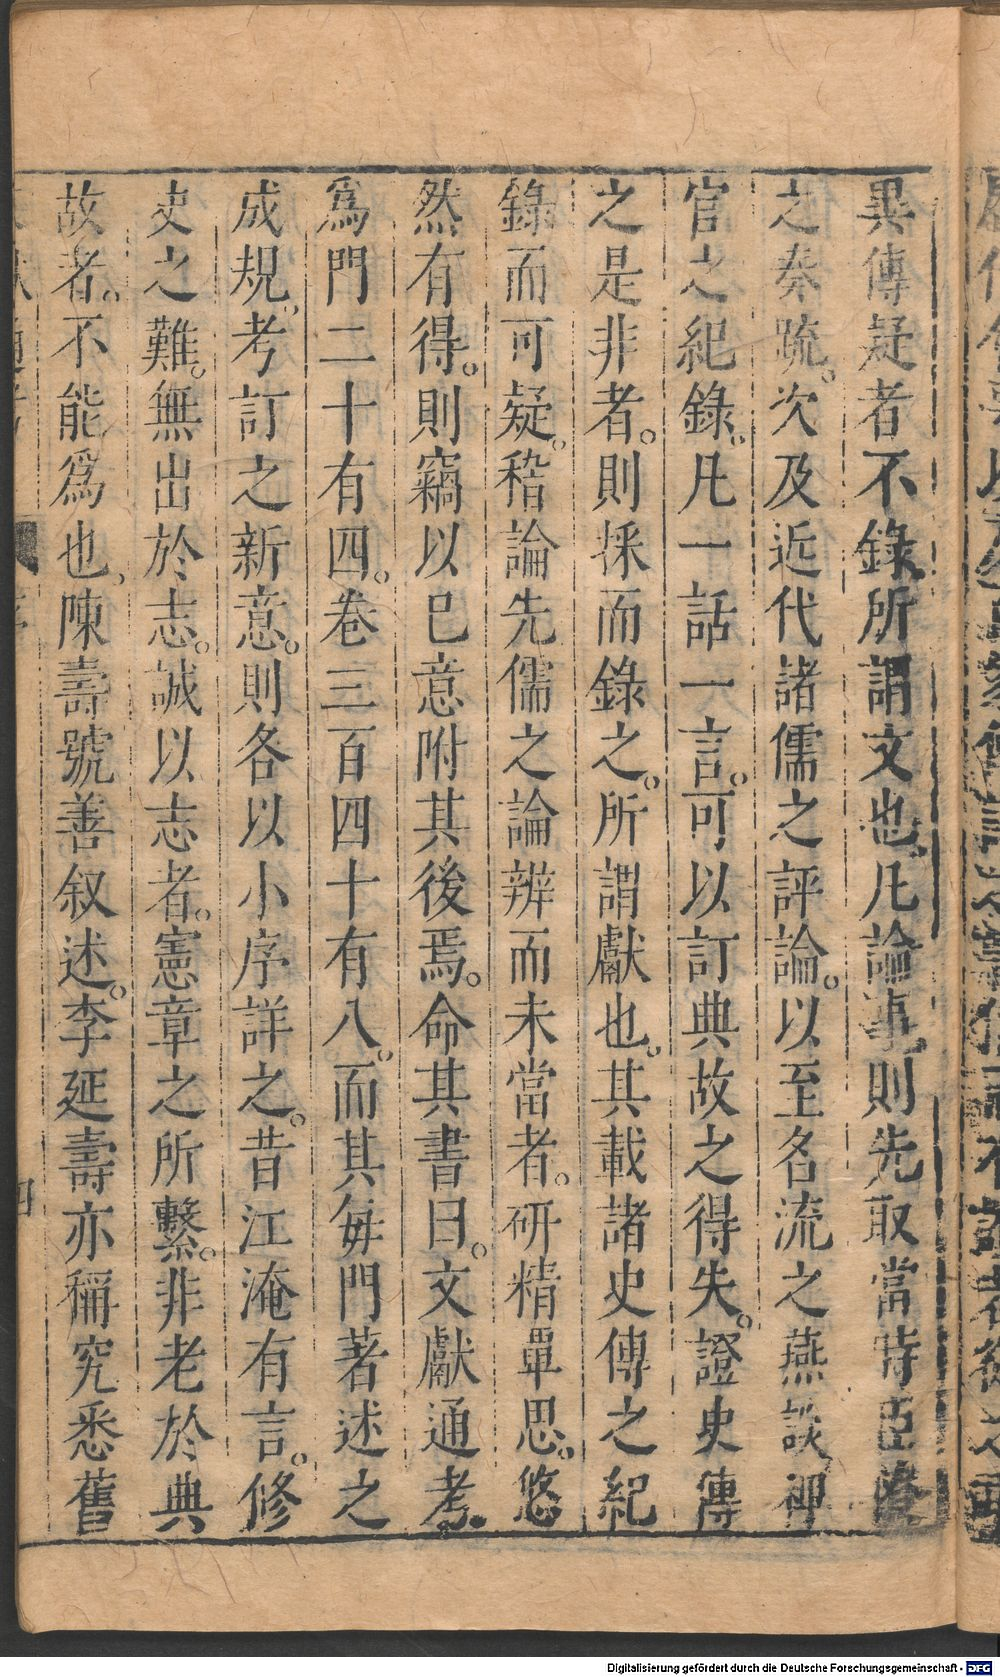 異傳疑者不錄所謂文也凡論事則先取當時臣僚
之奏疏。次及近代諸儒之評論。以至名流之燕談稗
官之紀錄。凡一話一言。可以訂典故之得失。證史傳
之是非者。則採而錄之。所謂獻也。其載諸史傳之紀
錄而可疑。稽論先儒之論辨而未當者。研精覃思。悠
然有得。則竊以已意附其後焉。命其書曰。文獻通考。
爲門二十有四。卷三百四十有八。而其每門著述之
成規。考訂之新意。則各以小序詳之。昔江淹有言。修
史之難。無出於志。誠以志者。憲章之所繫。非老於典
故者。不能爲也。陳壽號善叙述。李延壽亦稱究悉舊
四
Digitalisierung gefördert durch die Deutsche Forschungsgemeinschaft - DFG